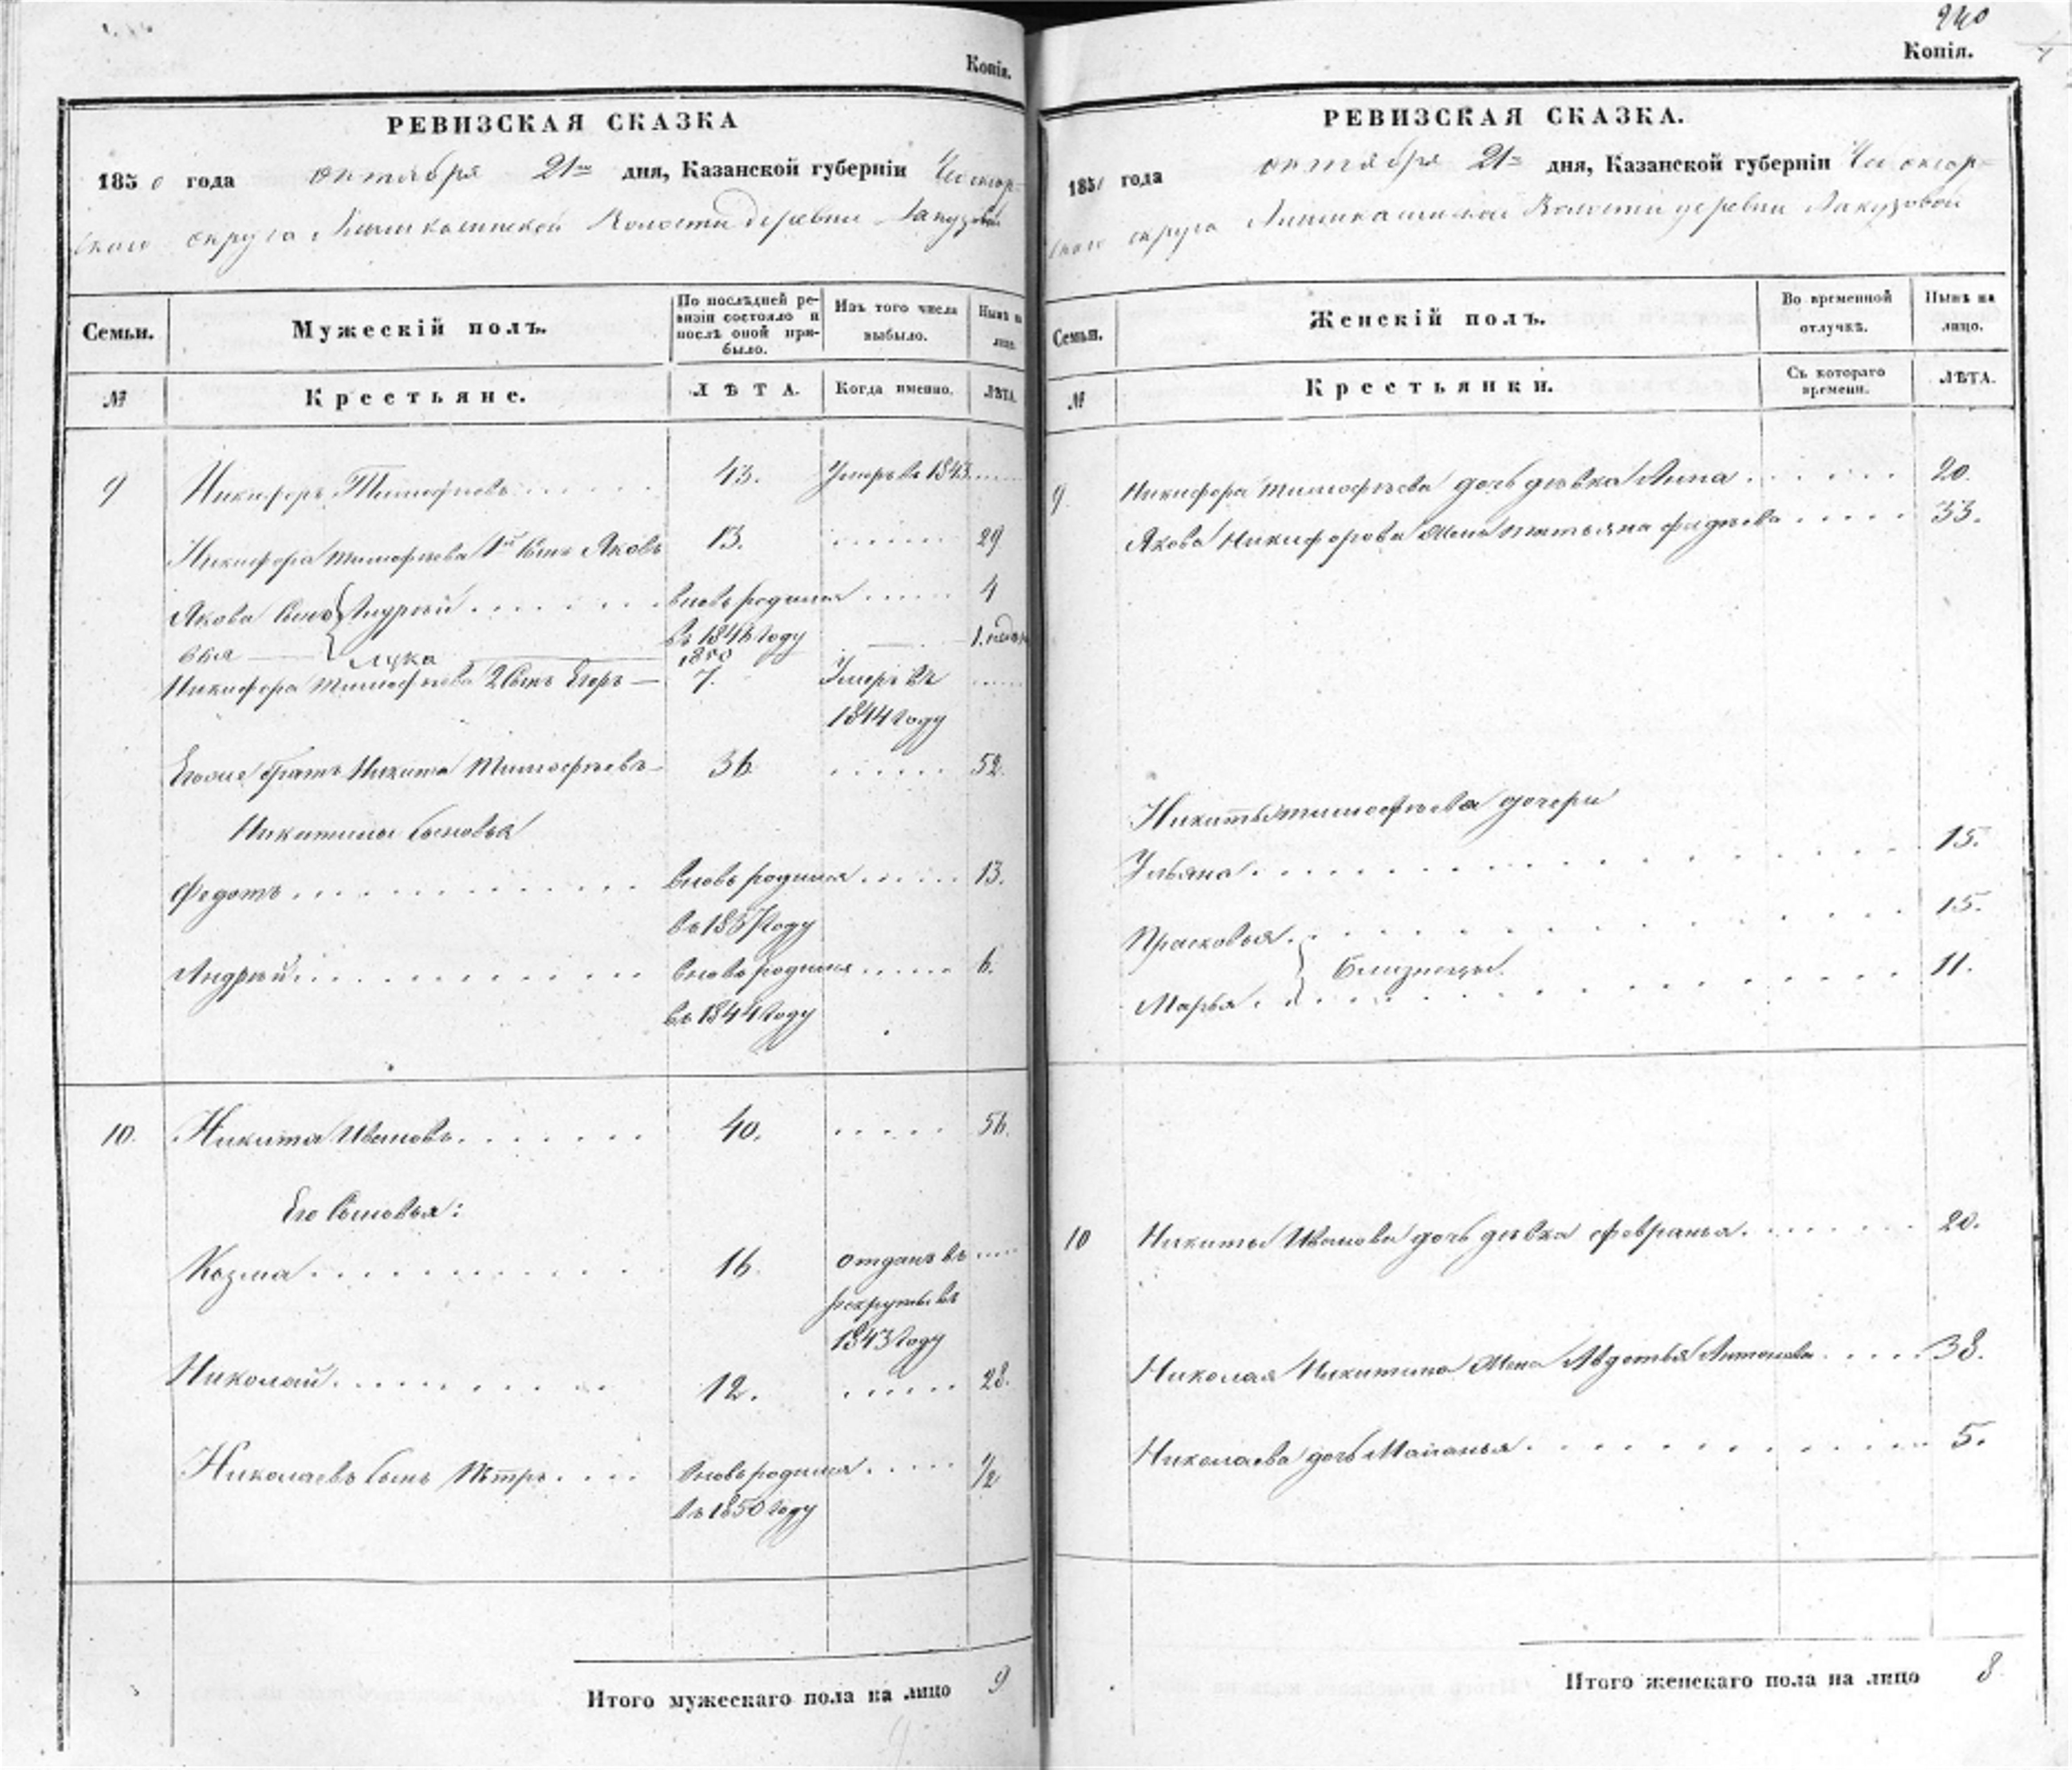 Копія.
РЕВИЗСКАЯ СКАЗКА
1850 года октября 21 дня, Казанской губерніи Чебоксар-
скаго округа Липшкасинской Волости деревни Лапузовой
Семьи.
Мужескій полъ.
По послѣдней ре-
визіи состояло и
послѣ оной при-
было.
Изъ того числа
выбыло.
Нынѣ на
лицо.
№
Крестьяне.
ЛѢТА.
Когда именно.
ЛѢТА.
9 Никифоръ Тимофѣевъ 43. Умеръ въ 1843
Никифора Тимофѣева 1й сынъ Яковъ 13. 29
Якова сыно Андрей вновь родился 4
вья Лука въ 1846 году 1. недѣл
1850
Никифора Тимофѣева 2 сынъ Егоръ 7. Умеръ въ
1844 году
Его же братъ Никита Тимофѣевъ 36 52.
Никитины сыновья
Федотъ вновь родился 13.
въ 1837 году
Андрей вновь родился 6.
въ 1844 году
10. Никита Ивановъ 40. 56.
Его Сыновья:
Козма 16. отданъ въ
рекруты въ
1843 году
Николай 12. 28.
Николаевъ сынъ Петръ вновь родился 1/2
въ 1850 году
Итого мужескаго пола на лицо 9
240
Копія.
РЕВИЗСКАЯ СКАЗКА.
185 года октября 21 дня, Казанской губерніи Чебоксар-
скаго округа Липшкасинской Волости деревни Лапузовой
Семьи.
Женскій полъ.
Во временной
отлучкѣ.
Нынѣ на
лицо.
№
Крестьянки.
Съ котораго
времени.
ЛѢТА.
9 Никифора Тимофѣева дочь дѣвка Анна 20.
Якова Никифорова жена Татьяна Фадѣева 33.
Никиты Тимофѣева дочери
Ульяна 15.
Прасковья 15.
Близнецы
Марья 11.
10 Никиты Иванова дочь дѣвка Февранья 20.
Николая Никитина жена Авдотья Антонова 38.
Николаева дочь Маланья 5.
Итого женскаго пола на лицо 8